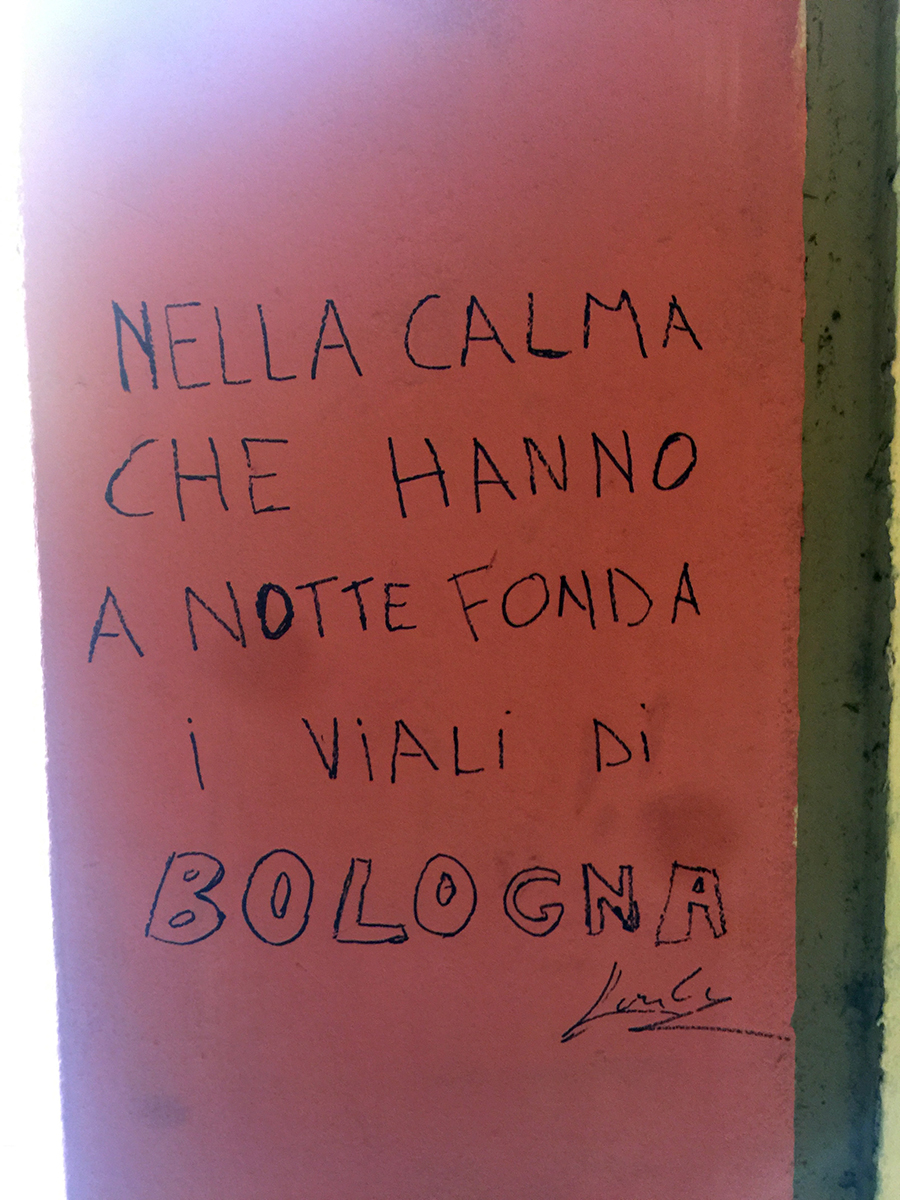 NELLA CALMA
CHE HANNO
A NOTTE FONDA
i ViALi Di
BOLOGNA